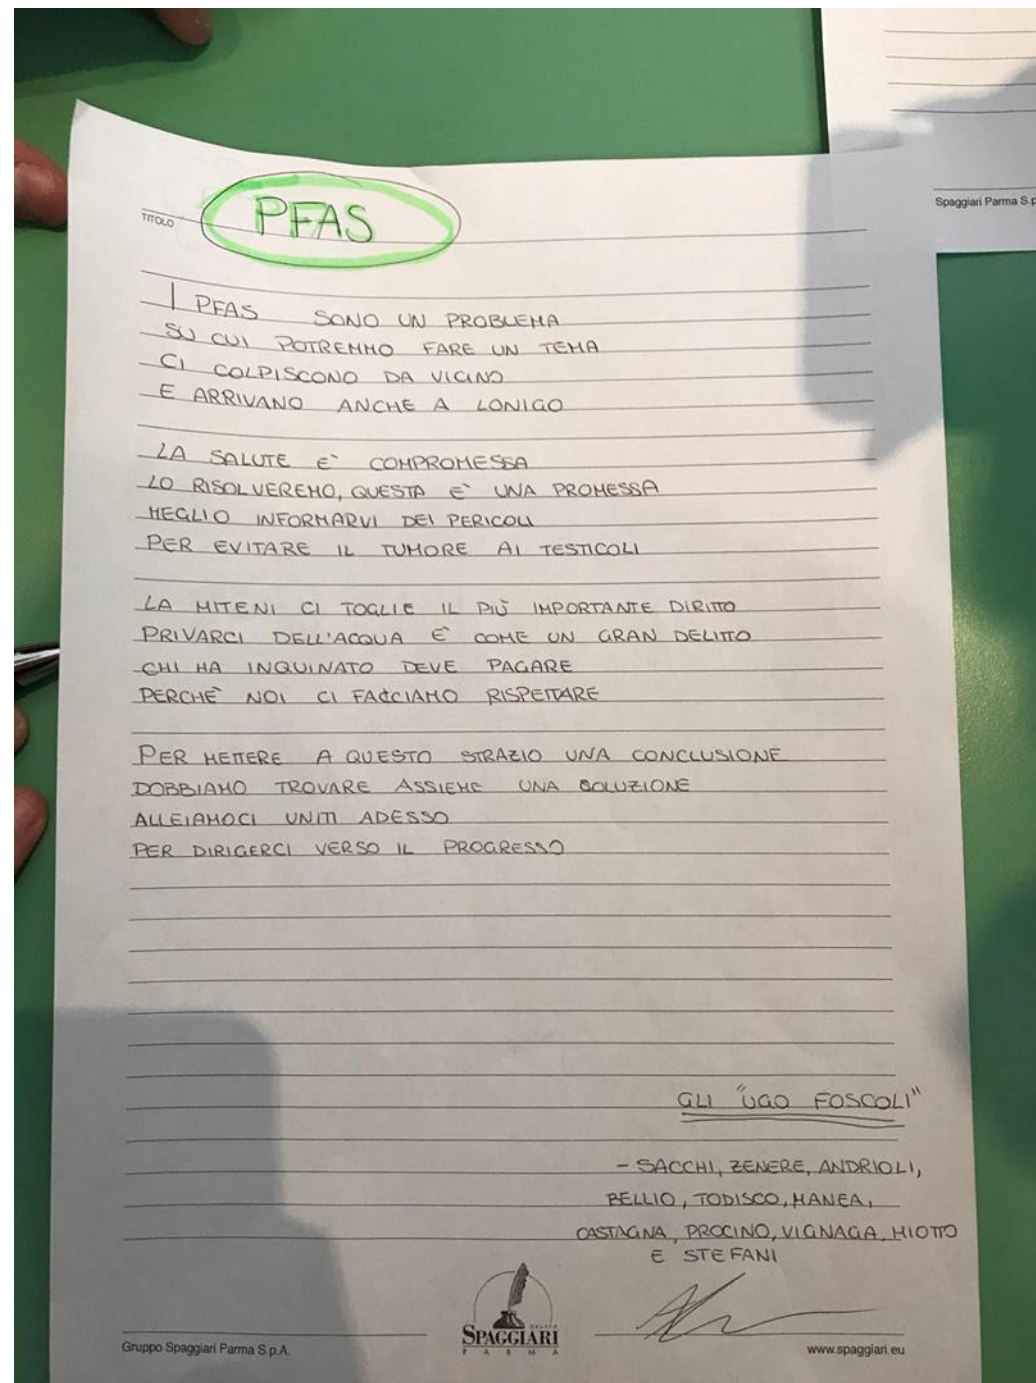 TITOLO
PFAS
I PFAS SONO UN PROBLEMA
SU CUI POTREMMO FARE UN TEMA
CI COLPISCONO DA VICINO
E ARRIVANO ANCHE A LONIGO
LA SALUTE E' COMPROMESSA
LO RISOLVEREMO, QUESTA E' UNA PROMESSA
MEGLIO INFORMARVI DEI PERICOLI
PER EVITARE IL TUMORE AI TESTICOLI
LA MITENI CI TOGLIE IL PIÙ IMPORTANTE DIRITTO
PRIVARCI DELL'ACQUA È COME UN GRAN DELITTO
CHI HA INQUINATO DEVE PAGARE
PERCHÈ NOI CI FACCIAMO RISPETTARE
PER METTERE A QUESTO STRAZIO UNA CONCLUSIONE
DOBBIAMO TROVARE ASSIEME UNA SOLUZIONE
ALLEIAMOCI UNITI ADESSO
PER DIRIGERCI VERSO IL PROGRESSO
GLI "UGO FOSCOLI"
- SACCHI, ZENERE, ANDRIOLI,
BELLIO, TODISCO, MANEA,
CASTAGNA, PROCINO, VIGNAGA, MIOTTO
E STEFANI
Gruppo Spaggiari Parma S.p.A.
GRUPPO
SPAGGIARI
PARMA
www.spaggiari.eu
Spaggiari Parma S.p